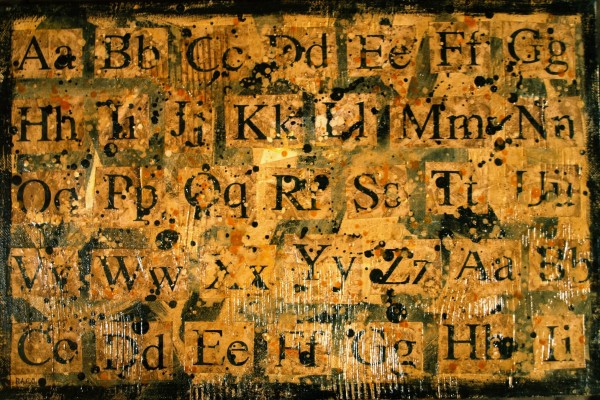 Aa Bb Cc Dd Ee Ff Gg
Hh Ii Jj Kk Ll Mm Nn
Oo Pp Qq Rr Ss Tt Uu
Vv Ww Xx Yy Zz Aa Bb
Cc Dd Ee Ff Gg Hh Ii